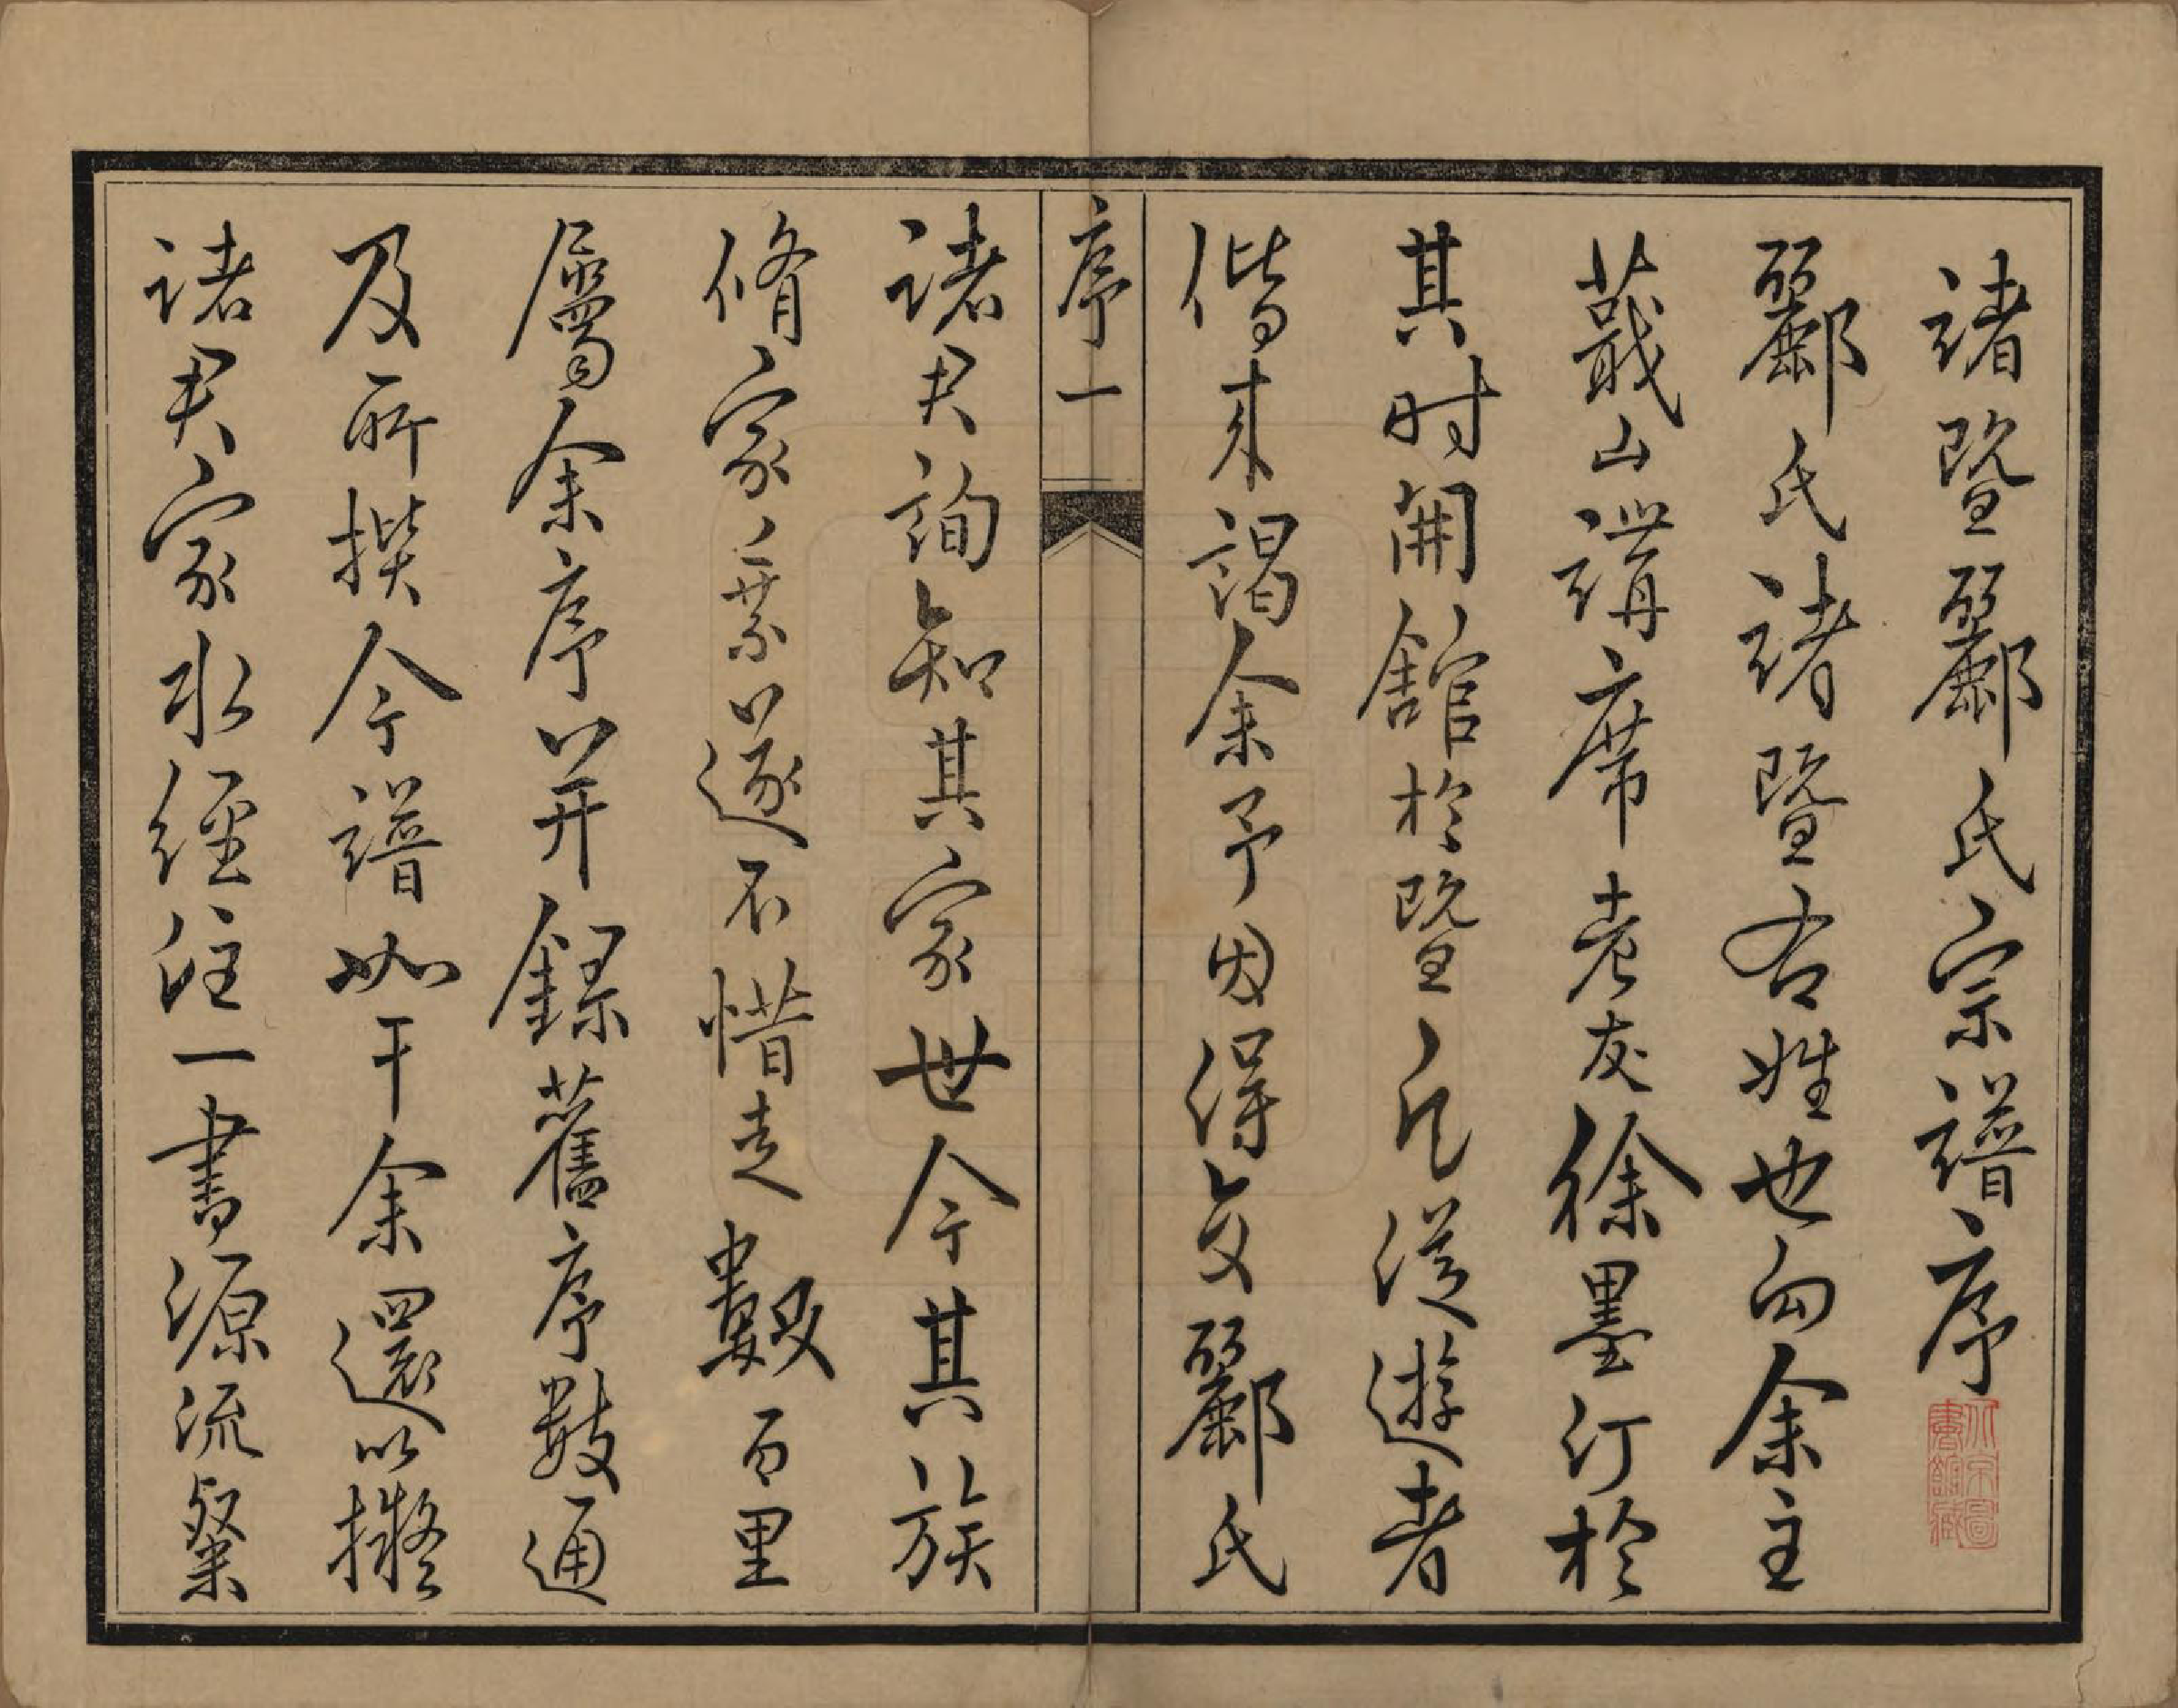 諸暨酈氏宗譜序
酈氏諸暨右姓也向余主
蕺山講席老友徐墨汀於
其時開館於暨之凡從遊者
偕來謁余予因得交酈氏
序一
諸君詢知其家世今其族
脩家乘竣不惜走數百里
屬余序以并錄舊序數通
及所撰今譜如干余還以擬
諸君家水經注一書源流粲